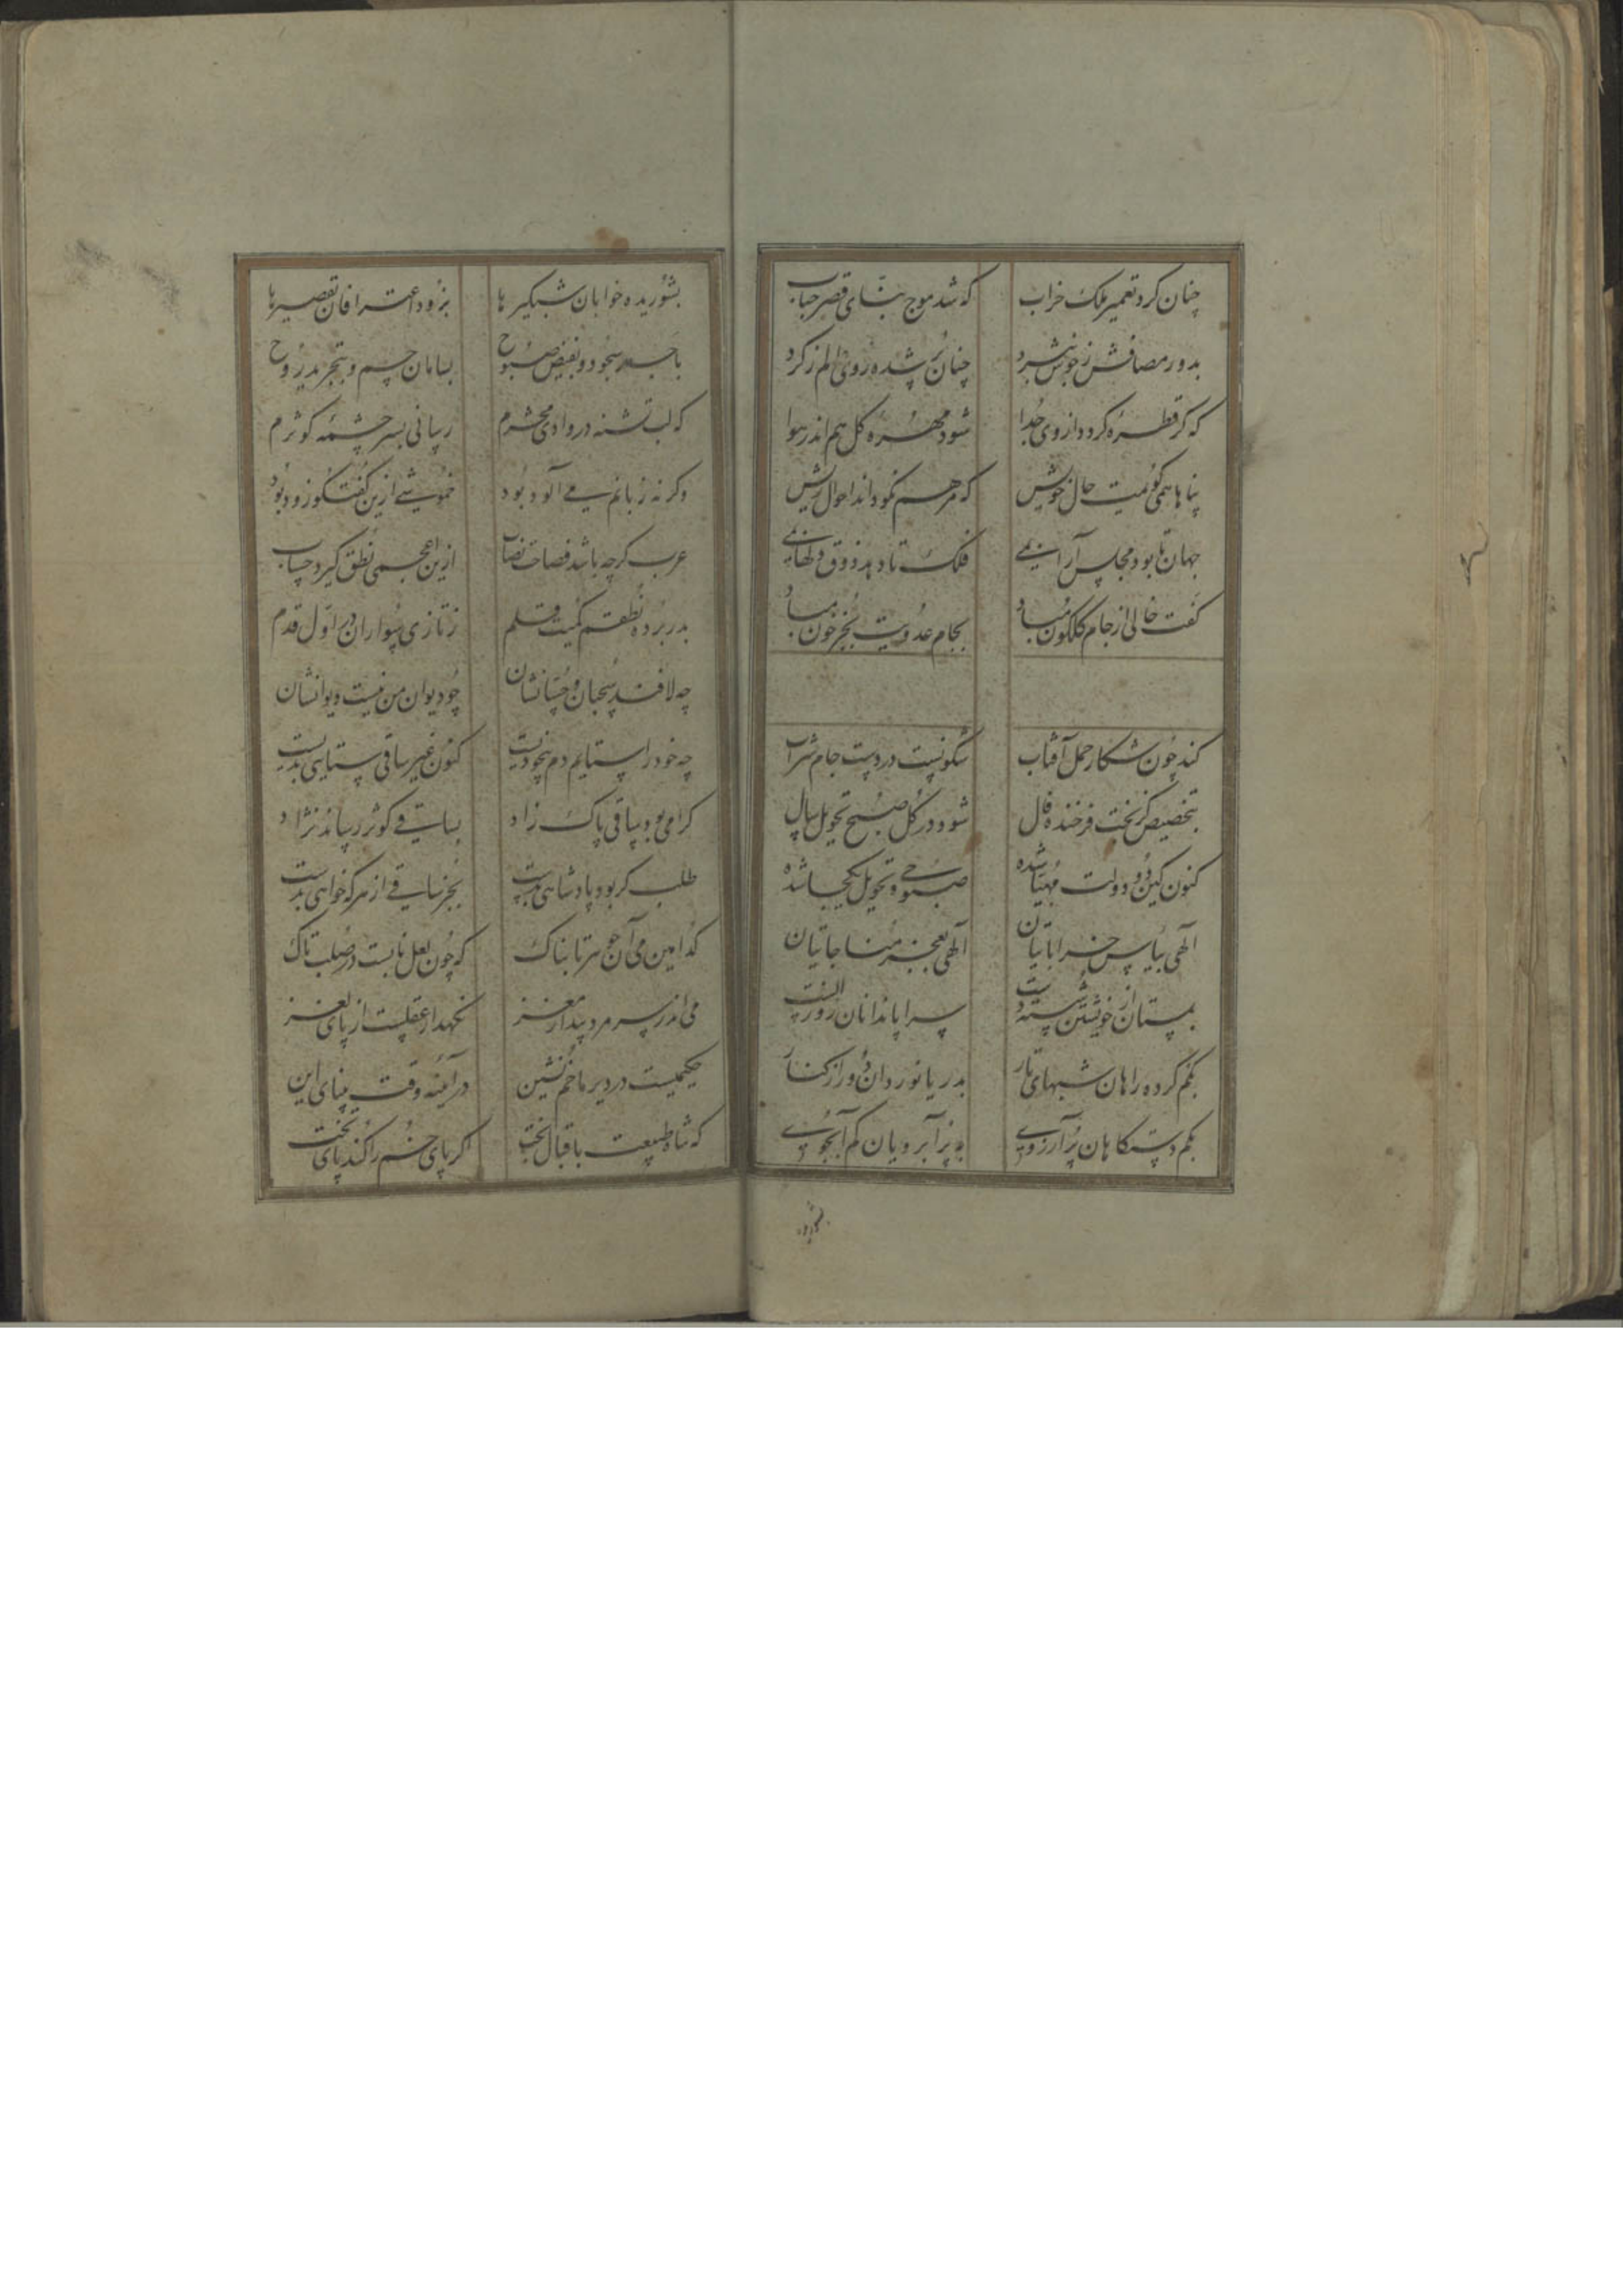 چنان کرد تعمیر ملک خراب که شد موج بنّای قصر حباب
بدور مصافش ز خون نبرد چنان پُر شده روی عالم ز گرد
که گر قطره گردد از وی جُدا شود مُهره گل هم اندر هوا
پناها همی گویمت حال خویش که مرهم نمود اند احوال ریش
جهان تا بود مجلس آراییی فلک تا دهد ذوق دلهاییی
کفت خالی از جام گلگون مباد بجام عدویت بجز خون مباد
کند چون شکار حمل آفتاب شگونیست در دست جام شراب
بتخصیص کز بخت فرخنده فال شود در گل صبح تحویل سال
کنون کین دو دولت مهیّا شده صبوحی و تحویل یکجا شده
الهی بپاس خراباتیان الهی بعجز مناجاتیان
بمستان از خویشتن شسته دست بسراپا ندانان روز الست
بگم کرده راهان شبهای تار بدریا نوردان دُور از کنار
بکم دستگاهان پُر آرزوی به پُر آبرویان کم آبجوی
بشوریده خوابان شبگیرها بزود اعترافان تقصیرها
با جسد سجود و بفیض صبوح بسامان جسم و بتجرید روح
که لب تشنه در وادی محشرم رسانی بسر چشمه کوثرم
وگرنه زبانم می آلود بود خموشی ازین گفتگو زود بود
عرب گرچه باشد فصاحت نصاب ازین اعجمی نطق گیرد حساب
بدر برده نطقم کمیت قلم ز تازی سواران در اوّل قدم
چه لافند سحبان و حسّانشان چو دیوان من نیست دیوانشان
چه خود را ستایم دم بیخودیست کنون غیر ساقی ستایی بدیست
گرامی بود ساقی پاک زاد بساقی کوثر رساند نژاد
طلب گر بود پادشاهی بدست بجز ساقی از هر که خواهی بدست
کدامین می آن جوهر تابناک که چون لعل نابست در صلب تاک
می اندر سر مرد بیدار مغز نگهدار عقلست از پای لغز
حکیمیست در دیر ما خم نشین در آئینه وقت بینای این
که شاه طبیعت باقبال بخت اگر پای خُم را کند پای تخت